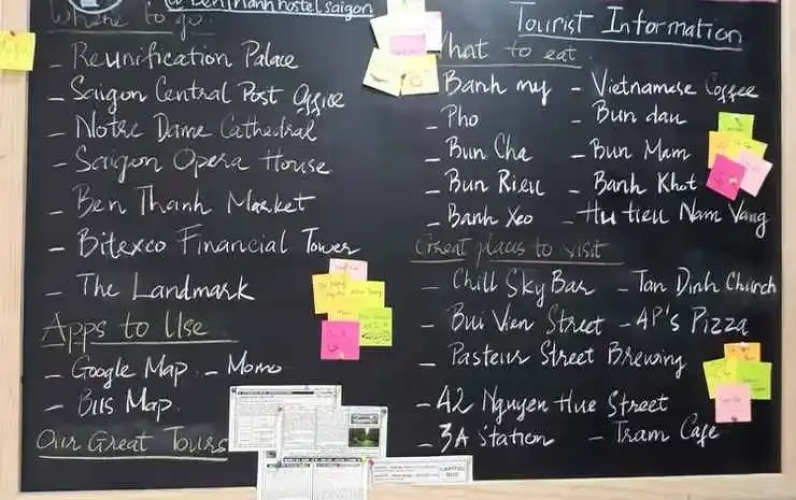 @benthanhhostelsaigon
Where to go
- Reunification Palace
- Saigon Central Post Office
- Notre Dame Cathedral
- Saigon Opera House
- Ben Thanh Market
- Bitexco Financial Tower
- The Landmark
Apps to Use
- Google Map - Momo
- Bus Map
Our Great Tours
Tourist Information
What to eat
- Banh my - Vietnamese Coffee
- Pho - Bun dau
- Bun Cha - Bun Mam
- Bun Rieu - Banh Khot
- Banh Xeo - Hu tieu Nam Vang
Great places to visit
- Chill Sky Bar - Tan Dinh Church
- Bui Vien Street - 4P's Pizza
- Pasteur Street Brewing
- 42 Nguyen Hue Street
- 3A Station - Tram Cafe